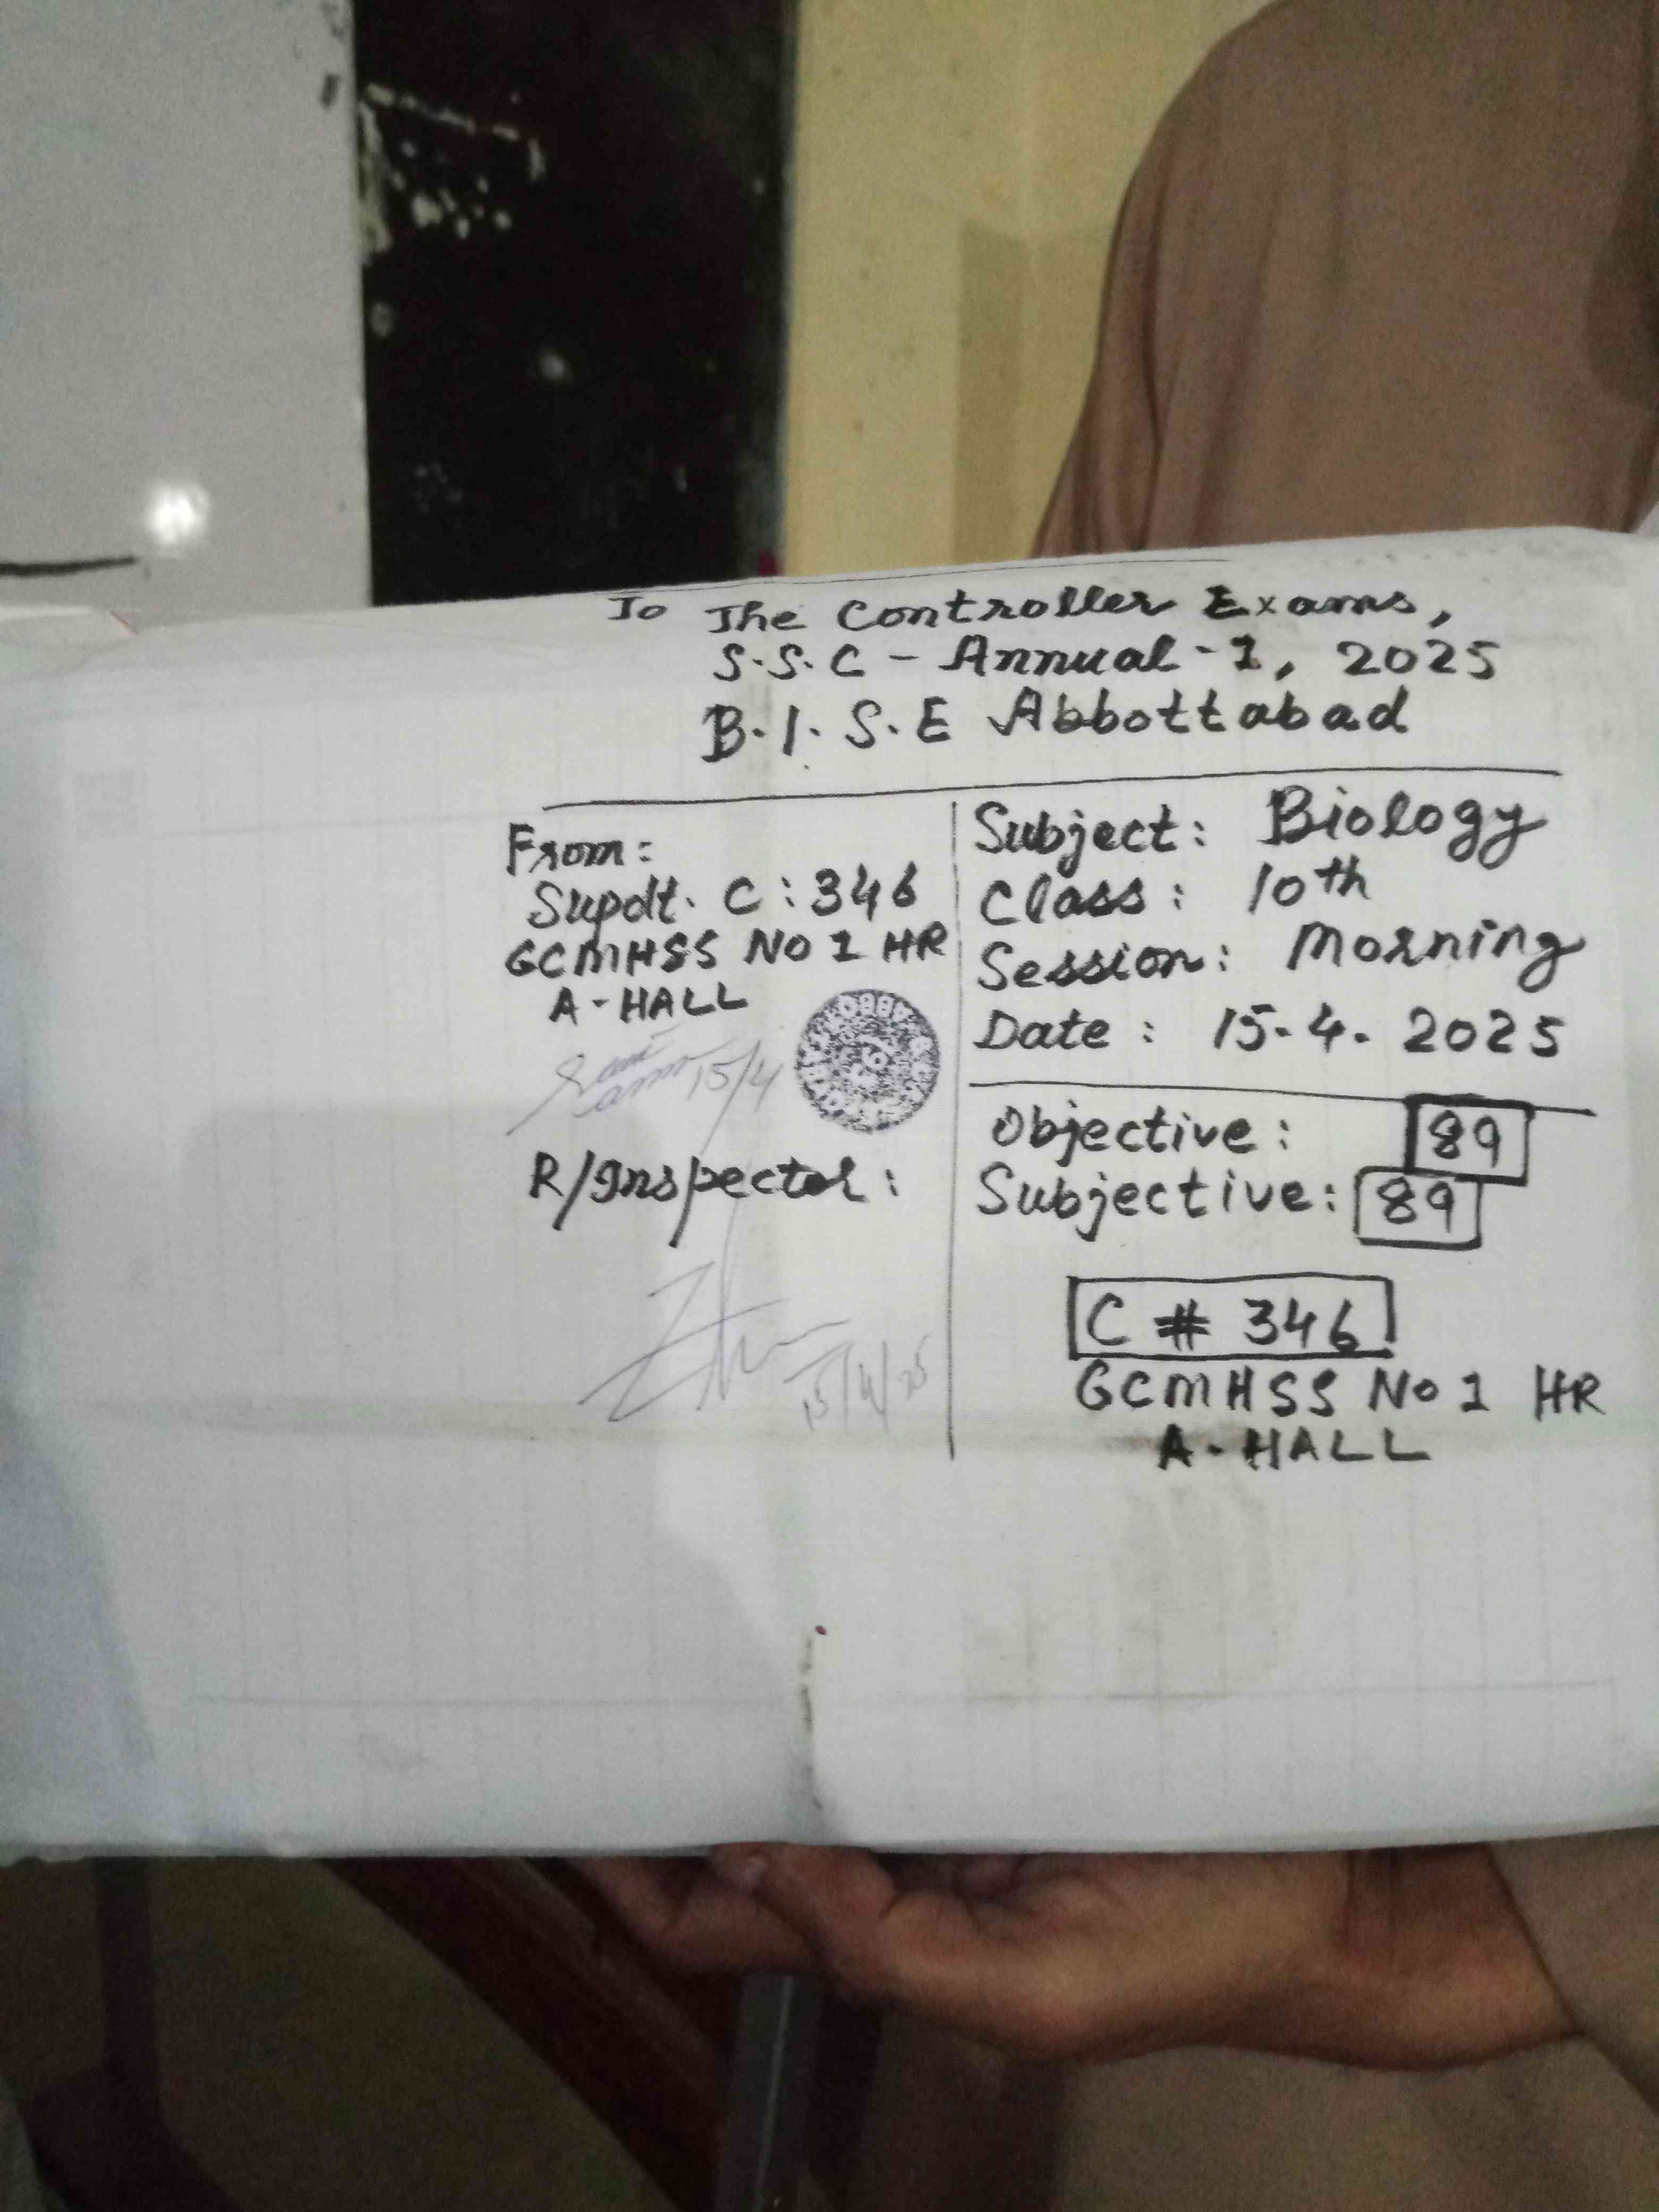 To The Controller Exams,
S.S.C - Annual - 1, 2025
B.I.S.E Abbottabad
From:
Supdt. C: 346
GCMHSS No 1 HR
A-HALL
15/4
R/Inspector:
15/4/25
Subject: Biology
Class: 10th
Session: Morning
Date: 15.4.2025
Objective: 89
Subjective: 89
C # 346
GCMHSS No 1 HR
A-HALL